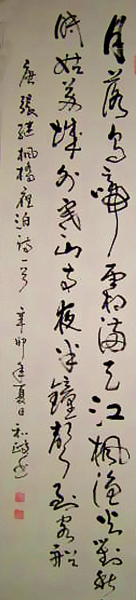 月落烏啼霜滿天江楓渔火對愁
眠姑苏城外寒山寺夜半鐘聲到客船
唐張继楓橋夜泊詩一首 辛卯年夏日